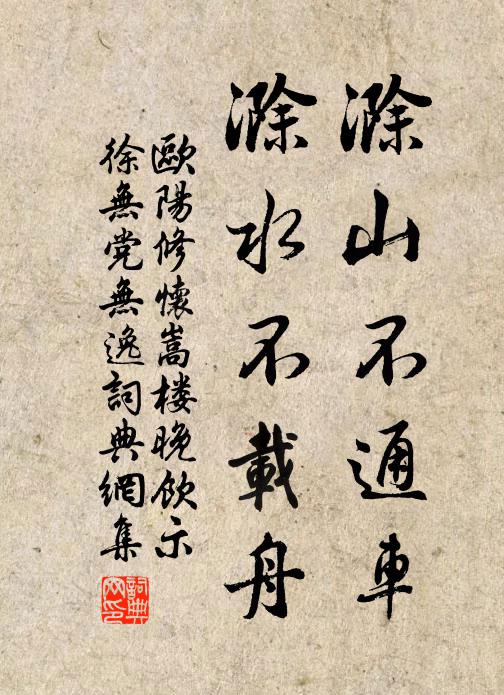 滁山不通車
滁水不載舟
歐陽修懷嵩楼晚飲示
徐無党無逸詞典網集
詞典网印